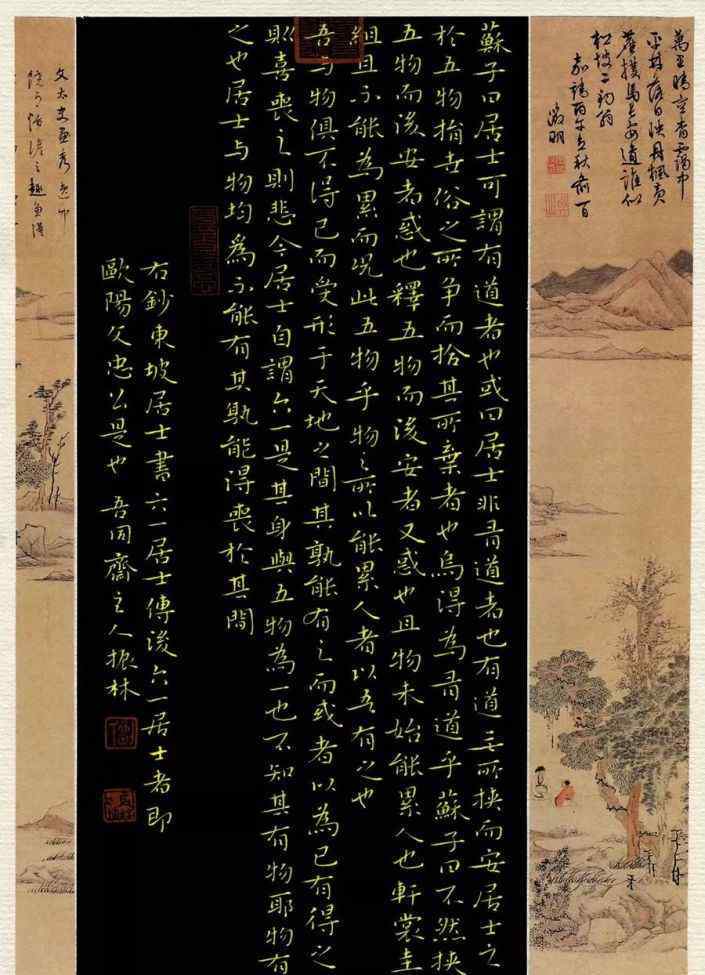 萬里晴空青靄中
蘇子曰居士可謂有道者也或曰居士非有道者也有道無所挾而安居士之
於五物捐世俗之所争而拾其所棄者也烏得為有道乎蘇子曰不然挾
五物而後安者惑也釋五物而後安者又惑也且物未始能累人也軒裳圭
組且不能為累而況此五物乎物之所以能累人者以吾有之也
吾与物俱不得已而受形于天地之間其孰能有之而或者以為己有得之
則喜喪之則悲今居士自謂六一是其身與五物為一也不知其有物耶物有
之也居士与物均為不能有其孰能得喪於其間
右鈔東坡居士書六一居士傳後六一居士者即
歐陽文忠公是也 吾同齋主人振林